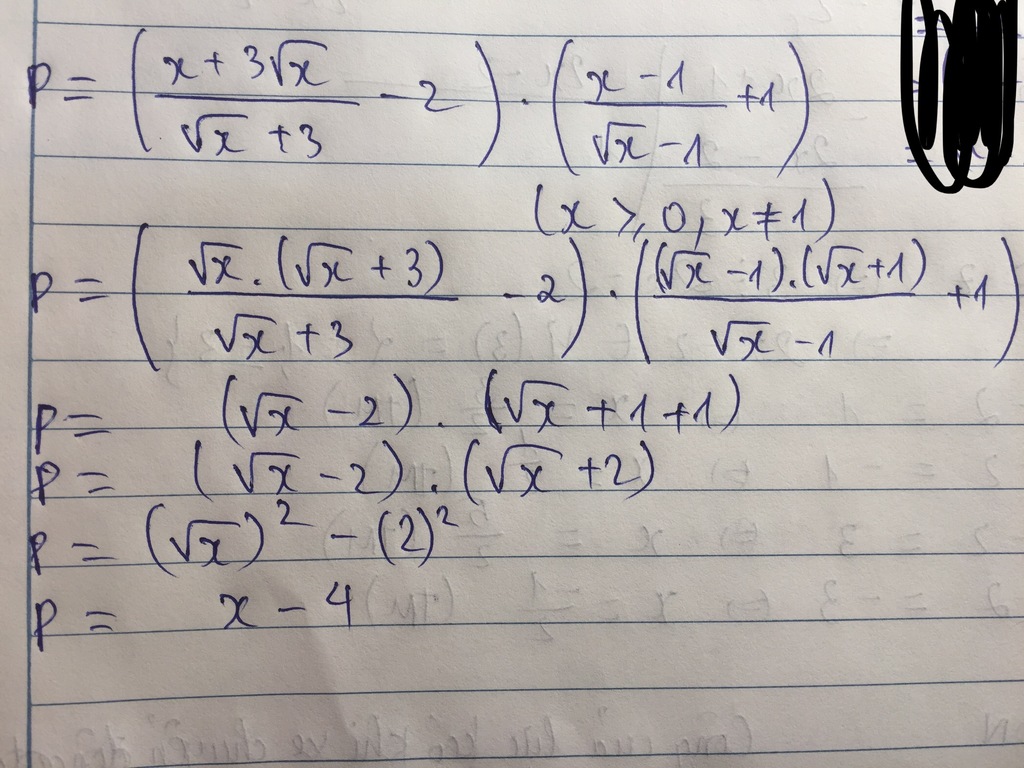 P = ( (x + 3√x)/(√x + 3) - 2 ) . ( (x - 1)/(√x - 1) + 1 )
(x ⩾ 0, x ≠ 1)
P = ( (√x . (√x + 3))/(√x + 3) - 2 ) . ( ((√x - 1).(√x + 1))/(√x - 1) + 1 )
P = (√x - 2) . (√x + 1 + 1)
P = (√x - 2) . (√x + 2)
P = (√x)² - (2)²
P = x - 4